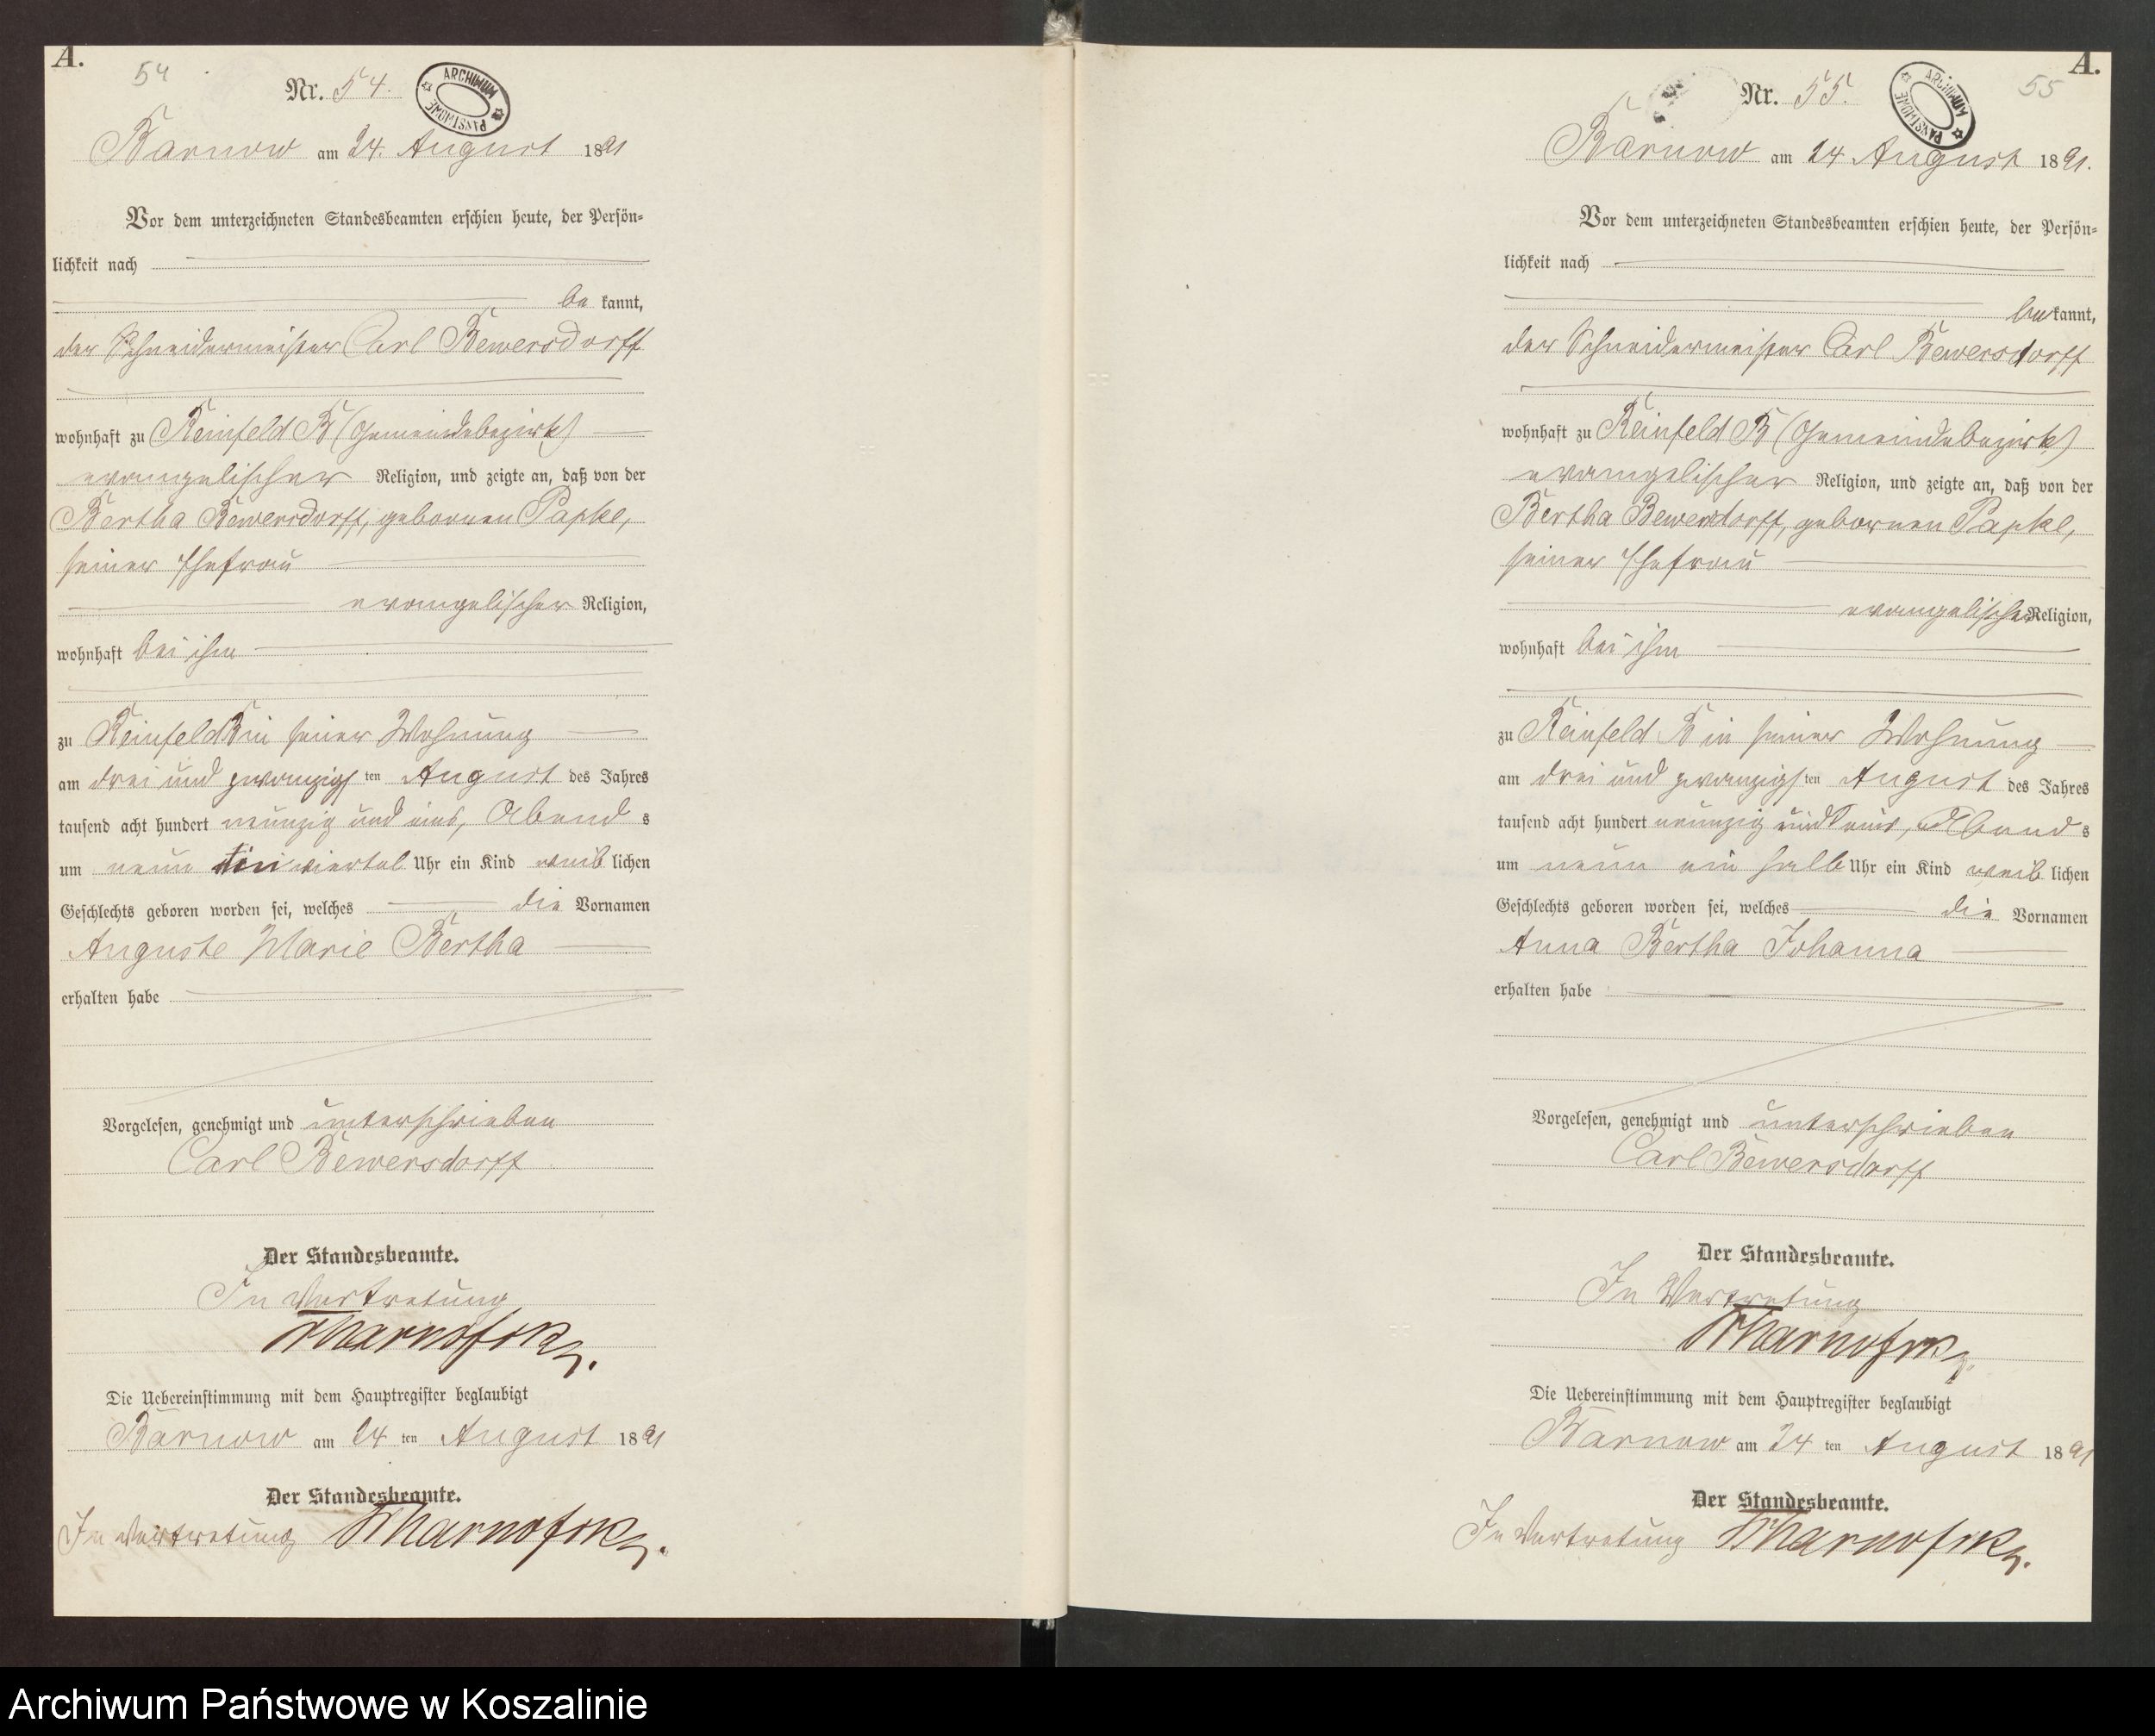 A.
54
Nr. 54.
ARCHIWUM PAŃSTWOWE
Barnow am 24. August 1891
Vor dem unterzeichneten Standesbeamten erschien heute, der Persön-
lichkeit nach
be kannt,
der Schneidermeister Carl Bewersdorff
wohnhaft zu Reinfeld B (Gemeindebezirk)
evangelischer Religion, und zeigte an, daß von der
Bertha Bewersdorff, gebornen Papke,
seiner Ehefrau
evangelischer Religion,
wohnhaft bei ihm
zu Reinfeld B in seiner Wohnung
am drei und zwanzigsten August des Jahres
tausend acht hundert neunzig und eins, Abends
um neun ein viertel Uhr ein Kind weiblichen
Geschlechts geboren worden sei, welches die Vornamen
Auguste Marie Bertha
erhalten habe
Vorgelesen, genehmigt und unterschrieben
Carl Bewersdorff
Der Standesbeamte.
In Vertretung
Die Uebereinstimmung mit dem Hauptregister beglaubigt
Barnow am 24 ten August 1891
Der Standesbeamte.
In Vertretung
A.
55
Nr. 55.
ARCHIWUM PAŃSTWOWE
Barnow am 24 August 1891.
Vor dem unterzeichneten Standesbeamten erschien heute, der Persön-
lichkeit nach
be kannt,
der Schneidermeister Carl Bewersdorff
wohnhaft zu Reinfeld B (Gemeindebezirk)
evangelischer Religion, und zeigte an, daß von der
Bertha Bewersdorff, gebornen Papke,
seiner Ehefrau
evangelischer Religion,
wohnhaft bei ihm
zu Reinfeld B in seiner Wohnung
am drei und zwanzigsten August des Jahres
tausend acht hundert neunzig und eins, Abends
um neun ein halb Uhr ein Kind weiblichen
Geschlechts geboren worden sei, welches die Vornamen
Anna Bertha Johanna
erhalten habe
Vorgelesen, genehmigt und unterschrieben
Carl Bewersdorff
Der Standesbeamte.
In Vertretung
Die Uebereinstimmung mit dem Hauptregister beglaubigt
Barnow am 24 ten August 1891
Der Standesbeamte.
In Vertretung
Archiwum Państwowe w Koszalinie